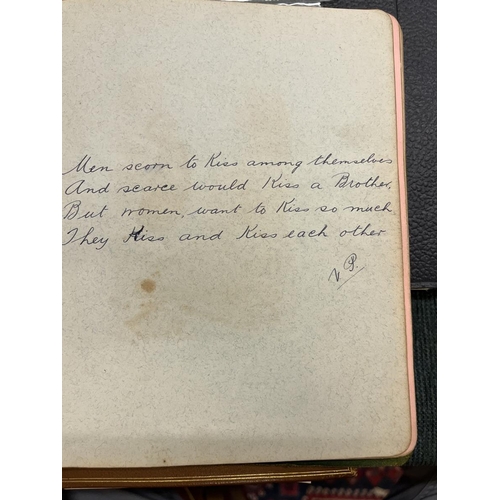 Men scorn to Kiss among themselves
And scarce would Kiss a Brother,
But women, want to Kiss so much
They Kiss and Kiss each other
V P.